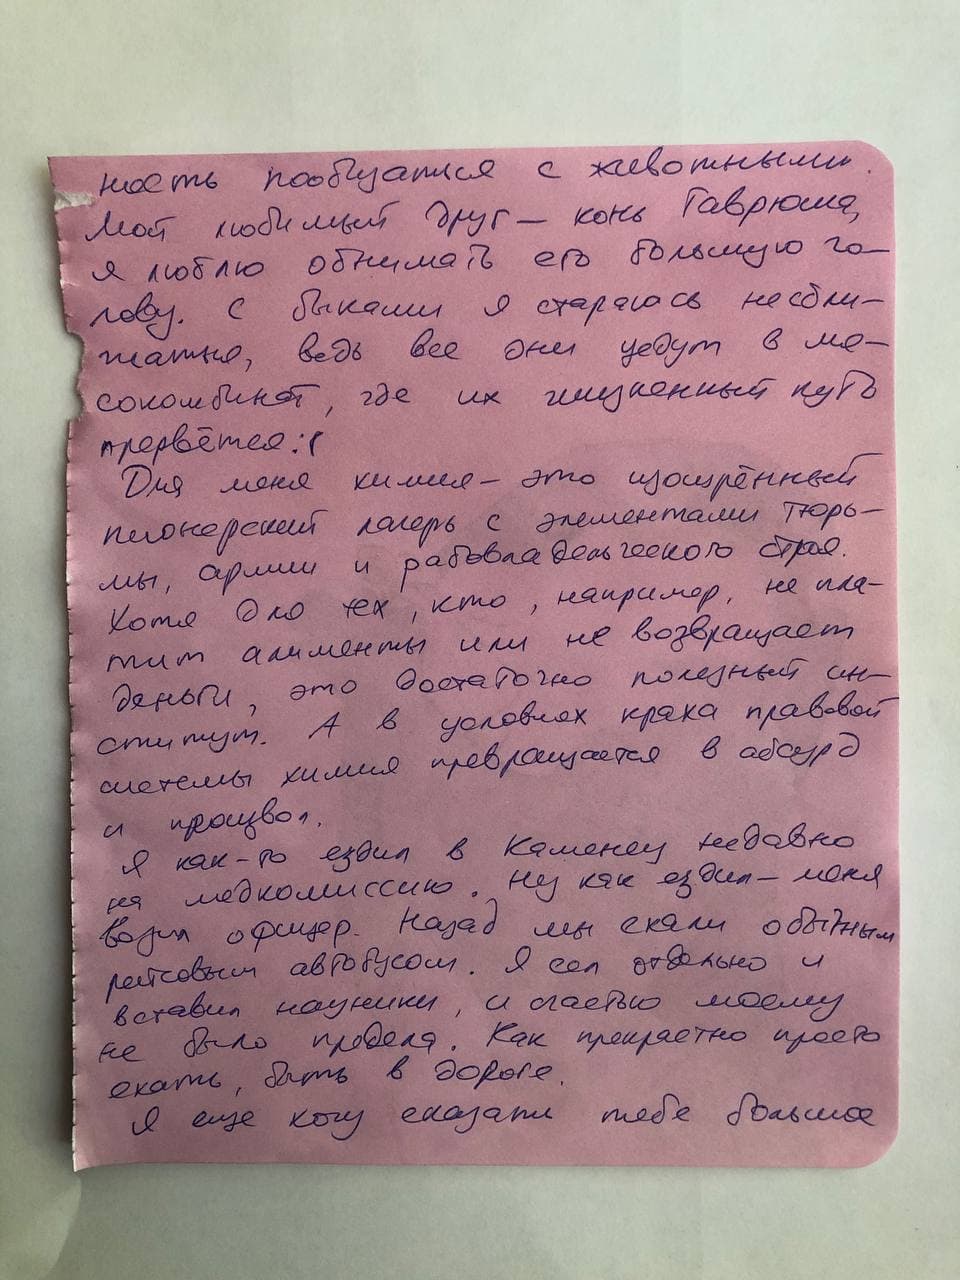 ность пообщаться с животными.
Мой любимый друг – конь Гаврюша,
я люблю обнимать его большую го-
лову. С быками я стараюсь не сбли-
жаться, ведь все они уедут в мя-
сокомбинат, где их жизненный путь
прервётся :(
Для меня химия – это изощрённый
пионерский лагерь с элементами тюрь-
мы, армии и рабовладельческого строя.
Хотя для тех, кто, например, не пла-
тит алименты или не возвращает
деньги, это достаточно полезный ин-
ститут. А в условиях краха правовой
системы химия превращается в абсурд
и произвол.
Я как-то ездил в Каменец недавно
на медкомиссию. Ну как ездил – меня
возил офицер. Назад мы ехали обычным
рейсовым автобусом. Я сел отдельно и
вставил наушники, и счастью моему
не было предела. Как прекрастно просто
ехать, быть в дороге.
Я еще хочу сказать тебе большое